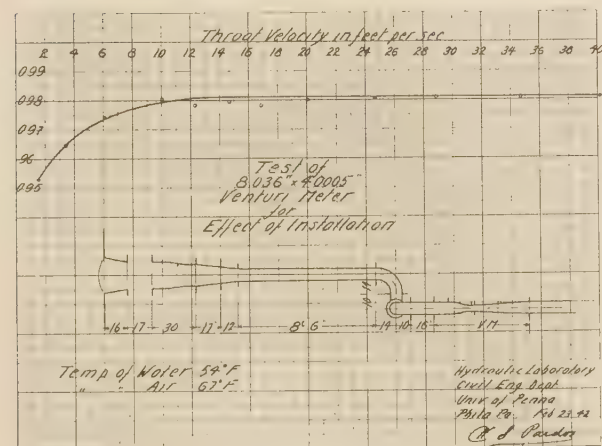 Throat Velocity in feet per sec
2 4 6 8 10 12 14 16 18 20 22 24 26 28 30 32 34 36 38 40
0.99
0.98
0.97
.96
0.95
Test of
8.036" x 4.0005"
Venturi Meter
for
Effect of Installation
16 17 30 17 12 8' 6" 14 10 16 V.M.
Temp of Water 54°F
" " Air 67°F
Hydraulic Laboratory
Civil Eng Dept
Univ of Penna
Phila Pa. Feb 23, 42
W S Pardoe